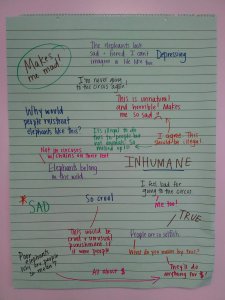 The elephants look
sad + tired. I can't
imagine a life like this.
Depressing
Makes
me mad
I'm never going
to the circus again!
This is unnatural
and horrible! Makes
me so sad
Why would
people mistreat
elephants like this?
It's illegal to do
this to people but
not animals. So
messed up!!
I agree. This
should be illegal!
Not in circuses
w/ chains on their feet
Elephants belong
in the wild
INHUMANE
I feel bad for
going to the circus
Me too!
So cruel
SAD
TRUE
This would be
cruel + unusual
punishment if
it were people
People are so selfish
What do you mean by this?
They'll do
anything for $!
Poor elephants
Why are people
so mean?
All about $